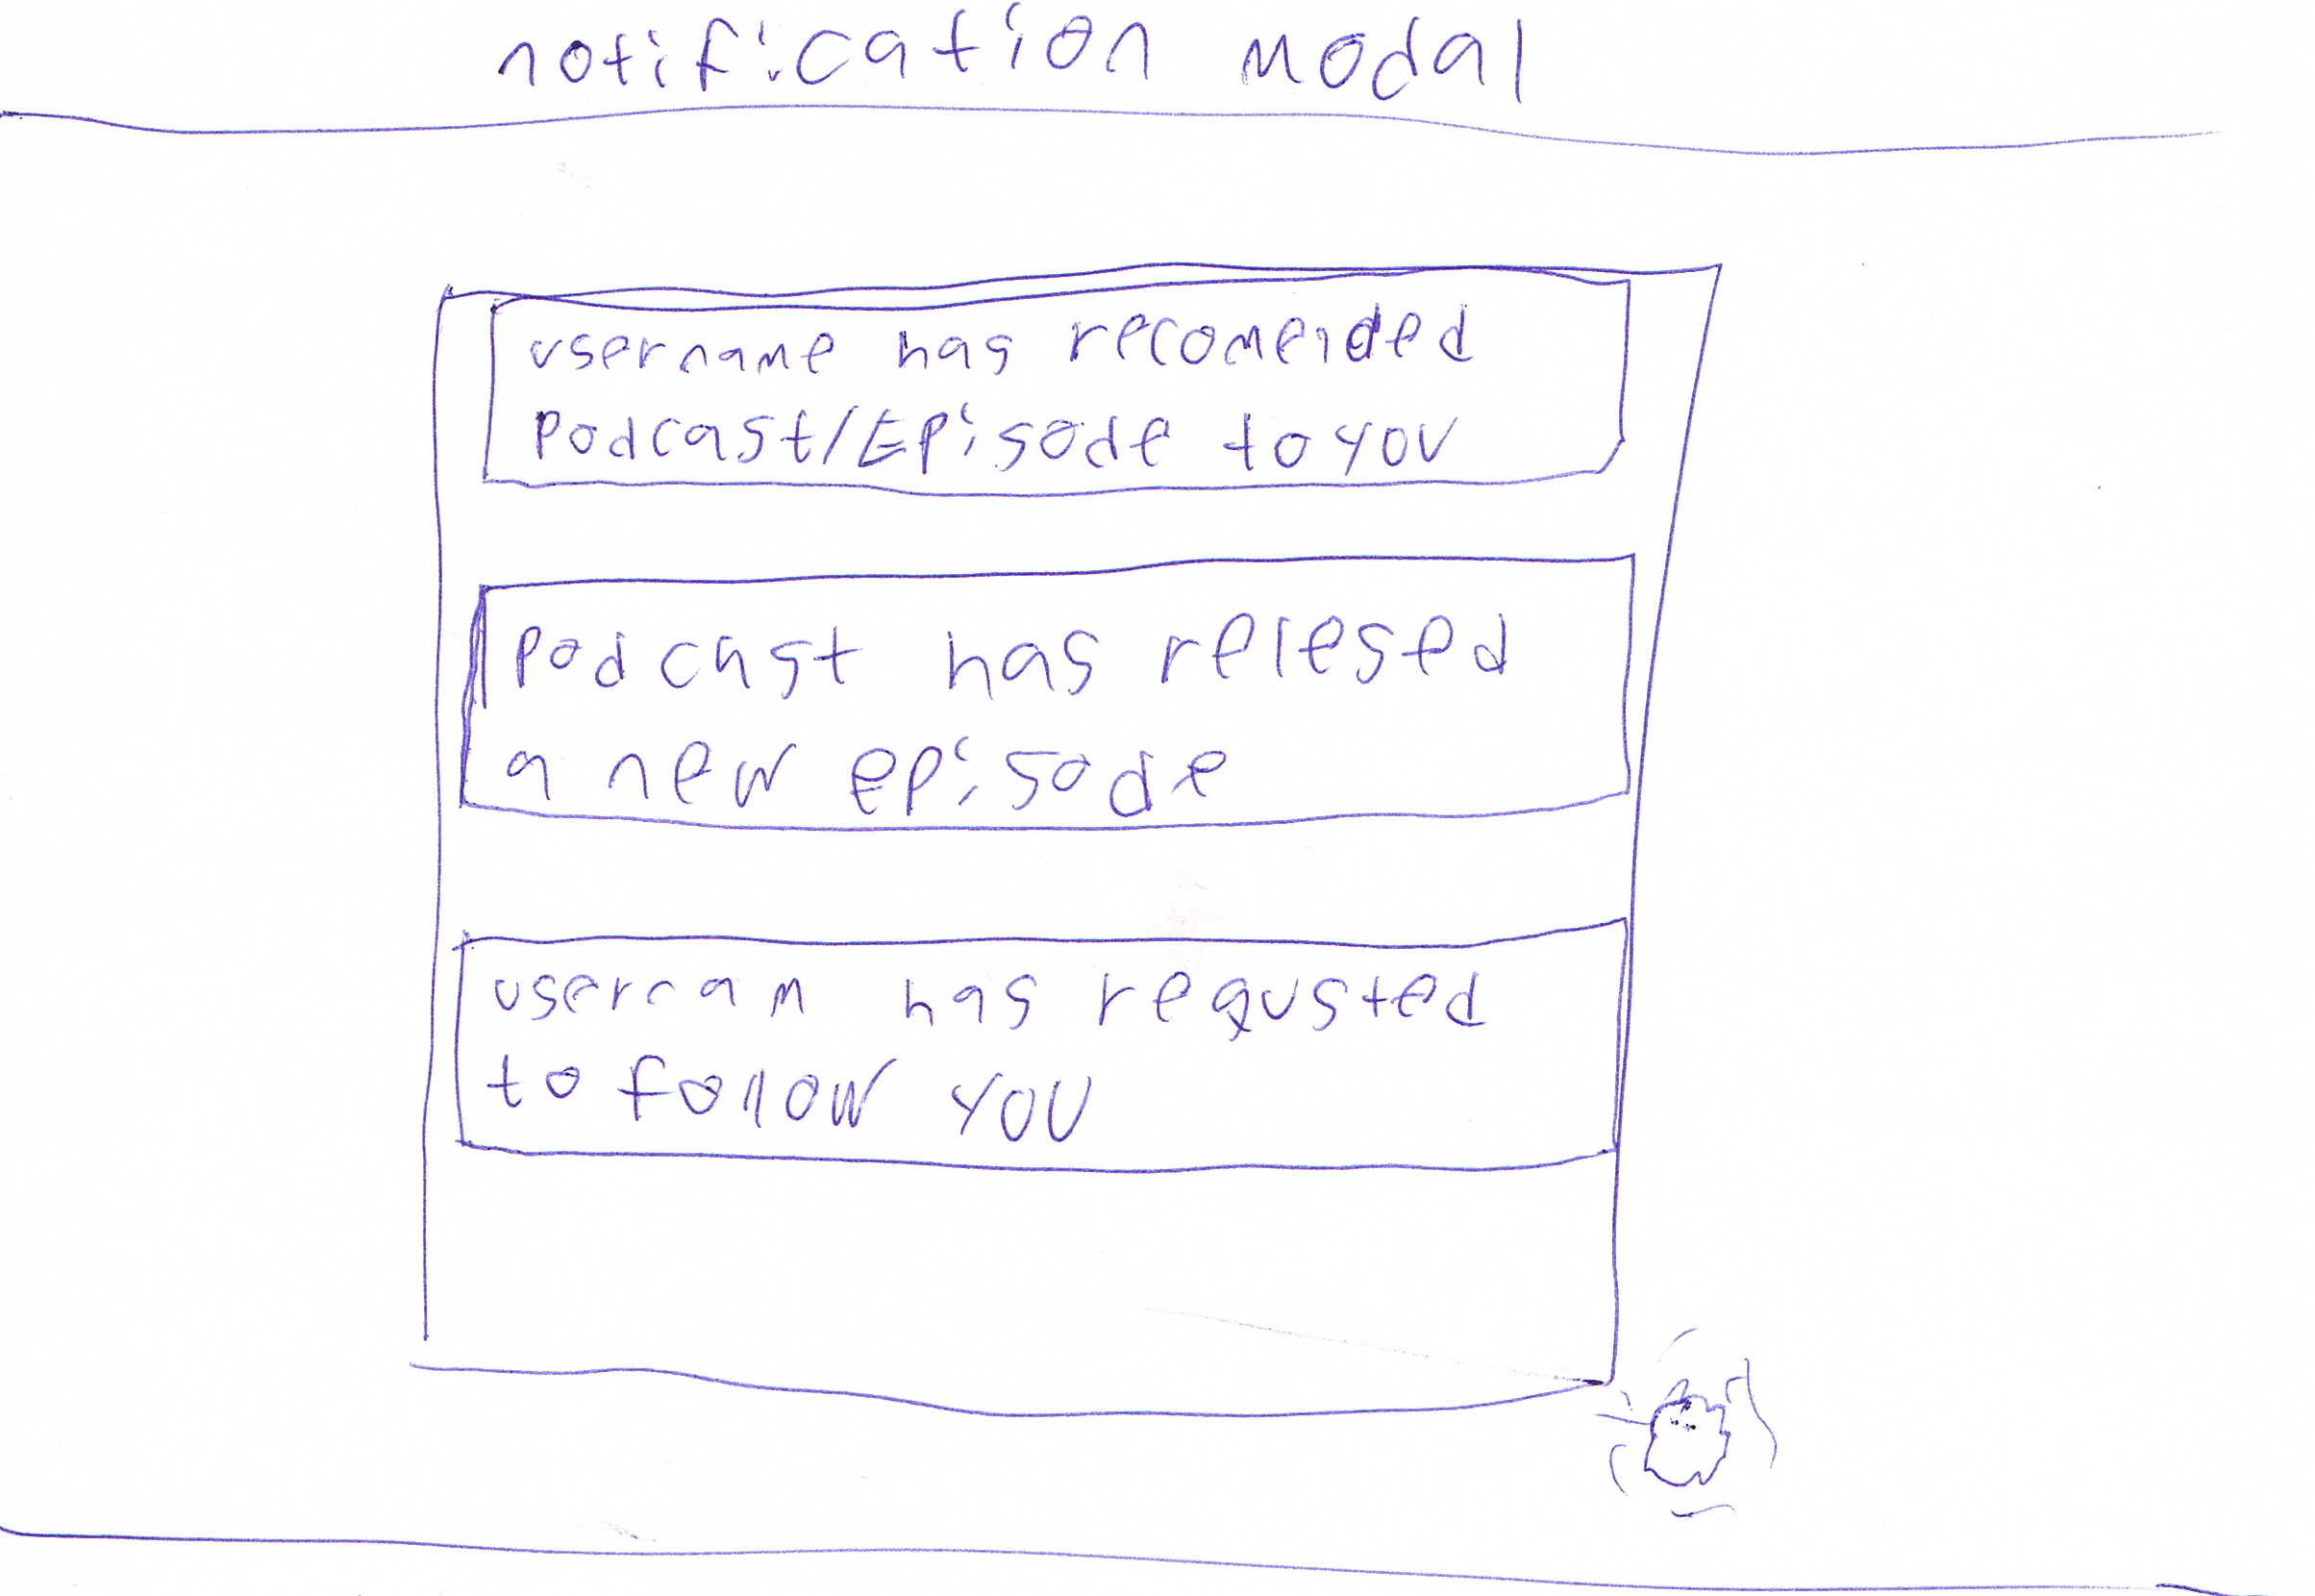 notification modal
username has recomended
Podcast/Episode to you
Podcast has relesed
a new episode
usernam has requsted
to follow you